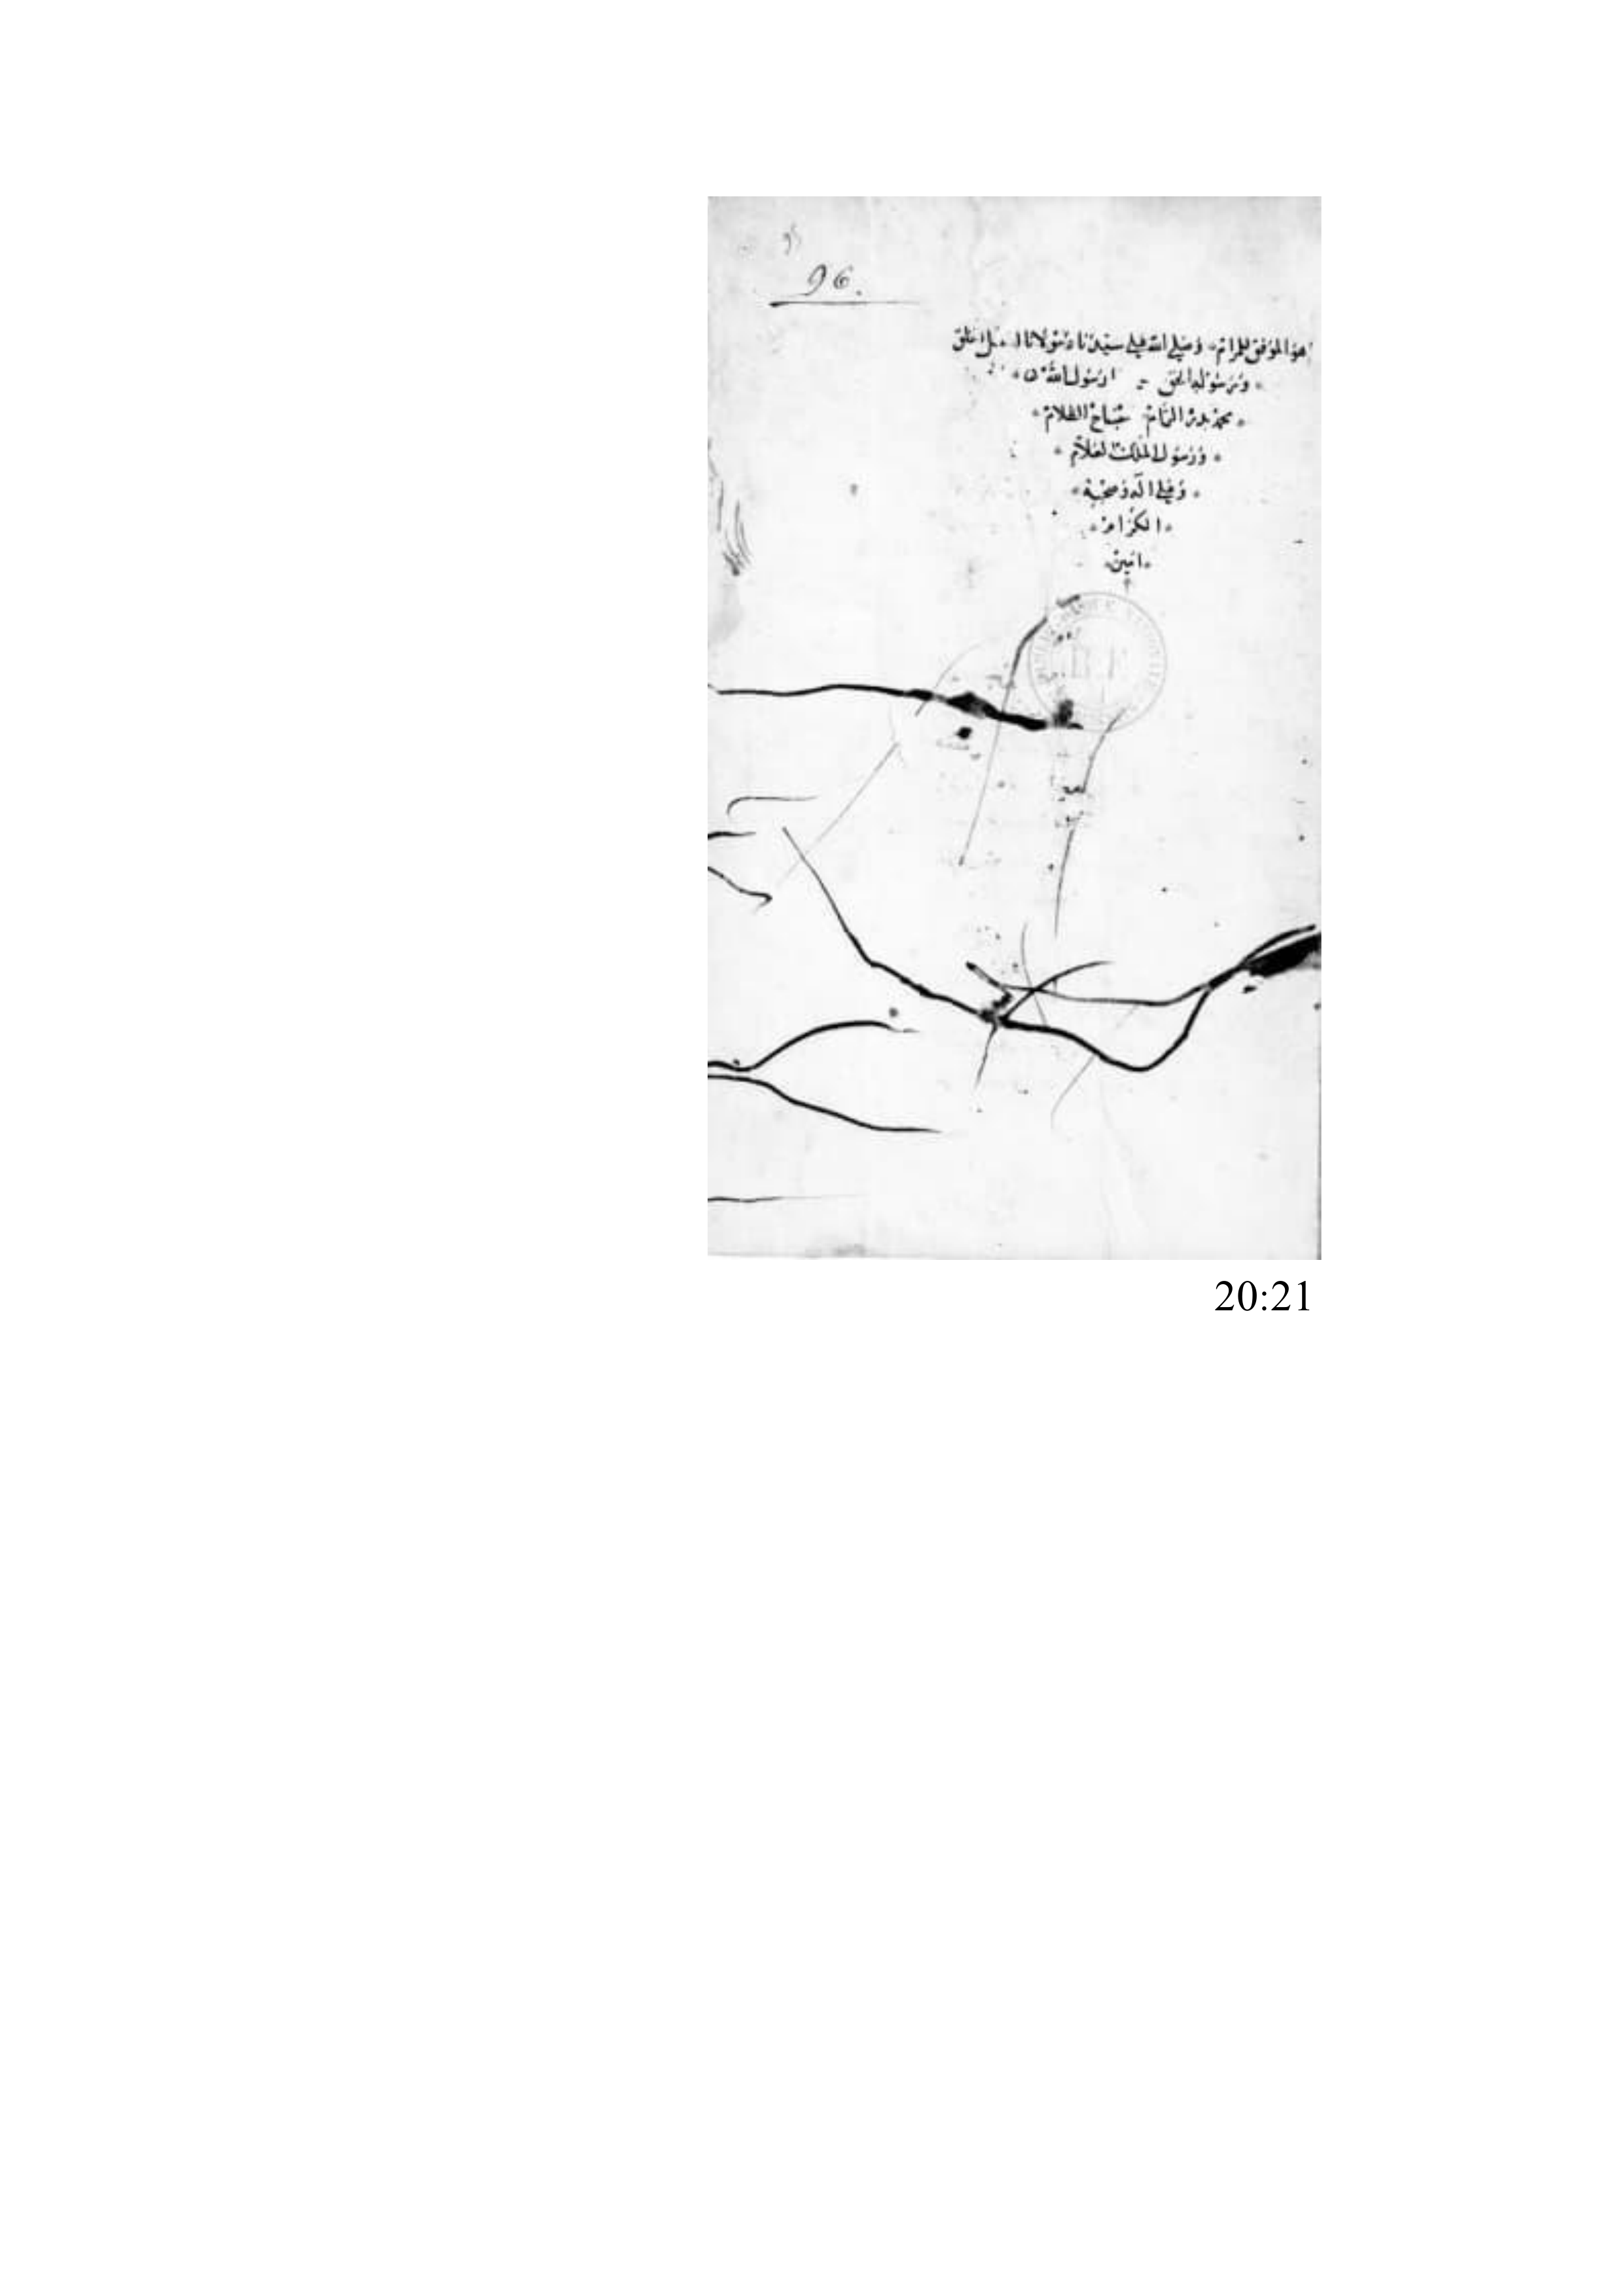 96.
هو الموفق للمرام وصلى الله على سيدنا ومولانا الخلق
ورسوله الحق رسول الله
محمد بدر التمام مصباح الظلام
ورسول الملك العلام
وعلى اله وصحبه
الكرام
امين
20:21